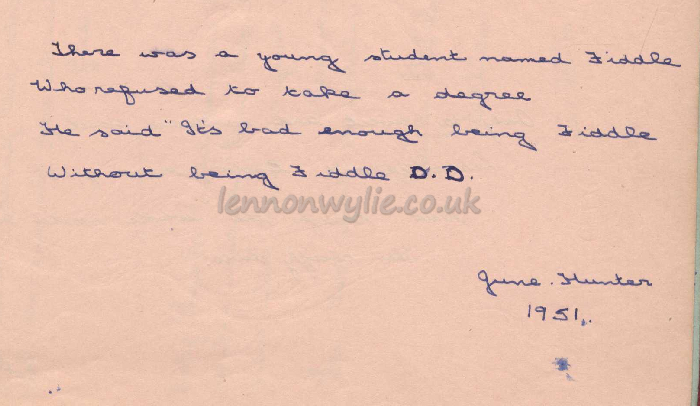 There was a young student named Fiddle
Who refused to take a degree
He said "It's bad enough being Fiddle
Without being Fiddle D.D.
lennonwylie.co.uk
June Hunter
1951.